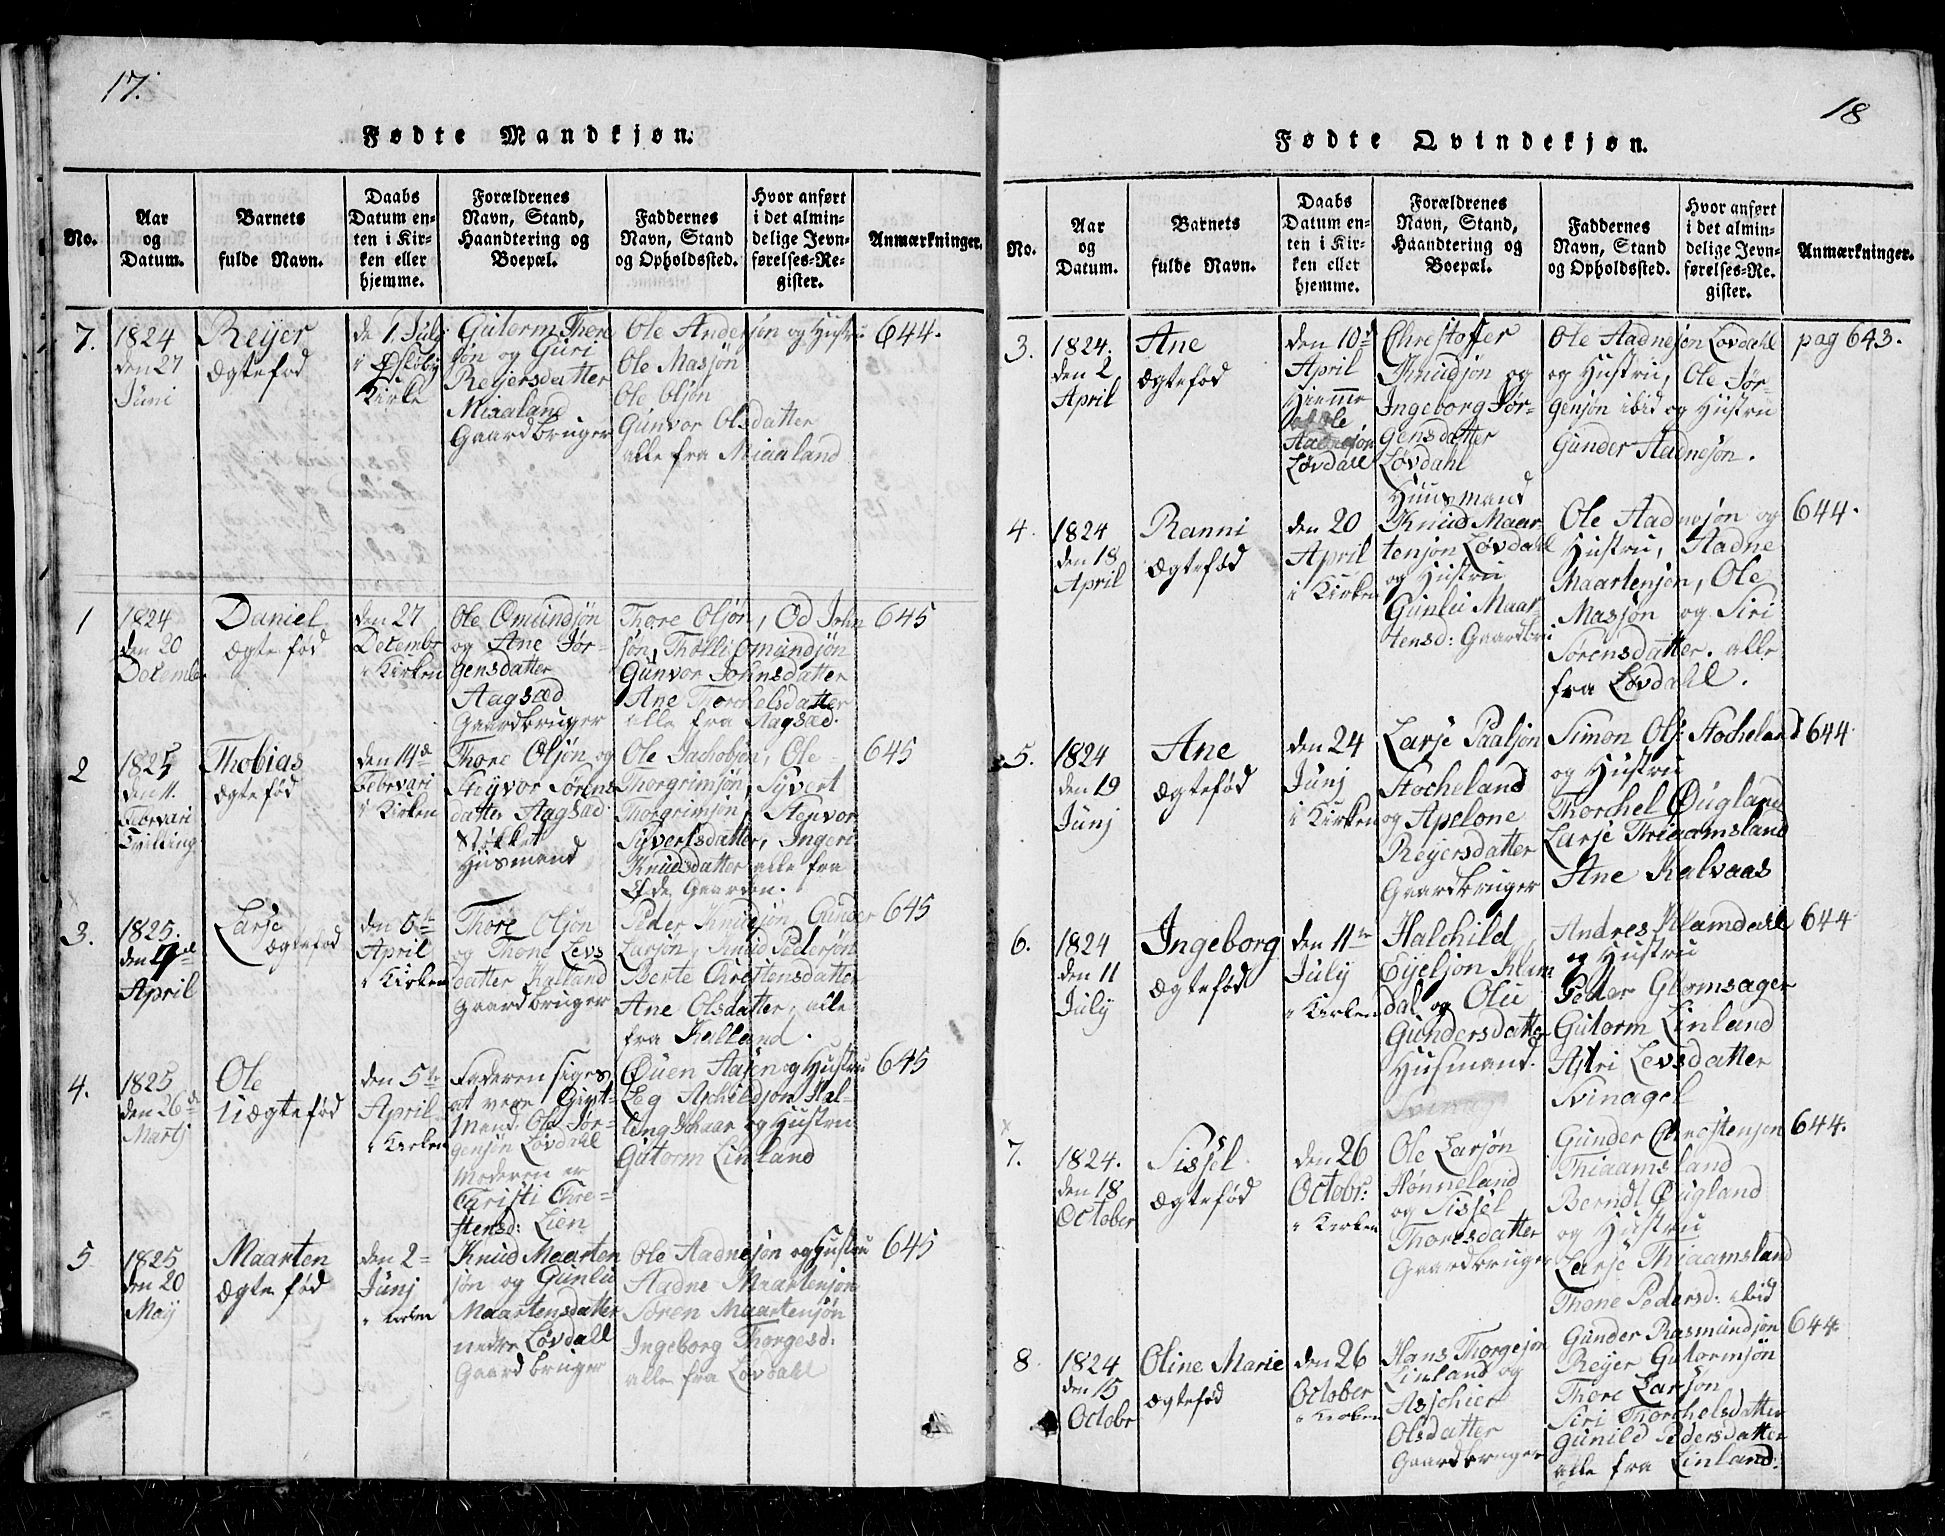 17.
Fødte Mandkjøn.
No.
Aar
og
Datum.
Barnets
fulde Navn.
Daabs
Datum en-
ten i Kir-
ken eller
hjemme.
Forældrenes
Navn, Stand,
Haandtering og
Boepæl.
Faddernes
Navn, Stand
og Opholdssted.
Hvor anført
i det almin-
delige Jevn-
førelses-Re-
gister.
Anmærkninger.
7.
1824
den 27
Juni
Reijer
ægtefød
de 1 July
i Øsløby
Kirke
Gutorm Thore
søn og Guri
Reijersdatter
Miaaland
Gaardbruger
Ole Andersøn og Hustru
Ole Masjøn
Ole Olsjøn
Gunvor Olsdatter
alle fra Miaaland
644.
1
1824
den 20
December
Daniel
ægte fød
den 27
Decembr
i Kirken
Ole Omundsjøn
og Ane Jør-
gensdatter
Aagsæd
Gaardbruger
Thore Olsjøn, Od John
søn, Tholli Omundsjøn
Gunvor Johnsdatter
Ane Thorchelsdatter
alle fra Aagsæd.
645
2
1825
den 11.
Februari
Tvilling
Thobias
ægtefød
den 14de
Februari
i Kirken
Thore Olsjøn og
Styvor Sørens
datter Aagsæd
Støkket
Husmand
Ole Jachobsjøn, Ole
Thorgrimsjøn, Syvert
Thorgrimsjøn, Stenvor
Syvertsdatter, Ingeri
Knudsdatter alle fra
Gaarden.
645
3.
1825.
den
April
Larse
ægtefød
den 5te
April
i Kirken
Thore Olsjøn
og Thone Levs
datter Kalland
Gaardbruger
Peder Knudsjøn, Gunder
Larsjøn, Knud Pedersjøn
Berte Christensdatter
Ane Olsdatter, alle
fra Kalland.
645
4.
1825
den 26de
Martj
Ole
Uægtefød
den 5te
April
i Kirken
Faderen siges
at være Givt-
Mand Ole Jør-
gensjøn Løvdahl
Moderen er
Christi Chre-
stensd: Lien
Øuen Aasen og Hustru
Leg Aschildsjøn Hal-
lingschaar og Hustru
Gutorm Linland
645
5
1825
den 20
Maij
Maarten
ægte fød
den 2
Junj
i Kirken
Knud Maarten
sjøn og Gunlu
Maartensdatter
nedre Løvdall
Gaardbruger
Ole Aadnesjøn og Hustru
Aadne Maartensjøn
Søren Maartensjøn
Ingeborg Thorgesd:
alle fra Løvdahl
645
18
Fødte Qvindekjøn.
No.
Aar
og
Datum.
Barnets
fulde Navn.
Daabs
Datum en-
ten i Kir-
ken eller
hjemme.
Forældrenes
Navn, Stand,
Haandtering og
Boepæl.
Faddernes
Navn, Stand
og Opholdssted.
Hvor anført
i det almin-
delige Jevn-
førelses-Re-
gister.
Anmærkninger.
3.
1824.
den 2
April
Ane
ægtefød
den 10de
April
Hiemme
af Ole
Aadnesjøn
Løvdall
Christoffer
Knudsjøn og
Ingeborg Jør-
gensdatter
Løvdahl
Huusmand
Ole Aadnesjøn Løvdahl
og Hustru, Ole Jør-
gensjøn ibid og Hustru
Gunder Aadnesjøn.
pag 643.
4.
1824
den 18
April
Ranni
ægtefød
den 20
April
i Kirken
Knud Maar
tensjøn Løvdahl
og Hustru
Gunlu Maar
tensd: Gaardbru
Ole Aadnesjøn og
Hustru, Aadne
Maartensjøn, Ole
Masjøn og Siri
Sorensdatter. alle
fra Løvdahl.
644.
5.
1824
den 19
Junj
Ane
ægtefød
den 24
Junj
i Kirken
Larse Paalsjøn
Stocheland
og Apelone
Reijersdatter
Gaardbruger
Simon Ols: Stocheland
og Hustru
Thorchel Øugland
Larse Thiaamsland
Ane Kalvaas
644
6.
1824
den 11
July
Ingeborg
ægtefød
den 11te
July
i Kirken
Halchild
Eijelsjøn Klam
dal og Olu
Gundersdatter
Husmand.
Andres Klamdahl
og Hustru
Peder Glomsager
Gutorm Linland
Astri Levsdatter
Svinagel
644
7.
1824.
den 18
October
Sissel
ægtefød
den 26
Octobr:
i Kirken
Ole Larsjøn
Hønneland
og Sissel
Thoresdatter
Gaardbruger
Gunder Christensjøn
Thiaamsland
Berndt Øugland
og Hustru
Larse Thiaamsland
Thone Pedersd: ibid
644.
8.
1824
den 15
Octobr
Oline Marie
ægtefød
den 26
October
i Kirken
Hans Thorgesjøn
Linland og
Asschier
Olsdatter
Gaardbruger
Gunder Rasmundsjøn
Reijer Gutormsjøn
Thore Larsjøn
Siri Thorchelsdatter
Gunild Pedersdatter
alle fra Linland:
644.